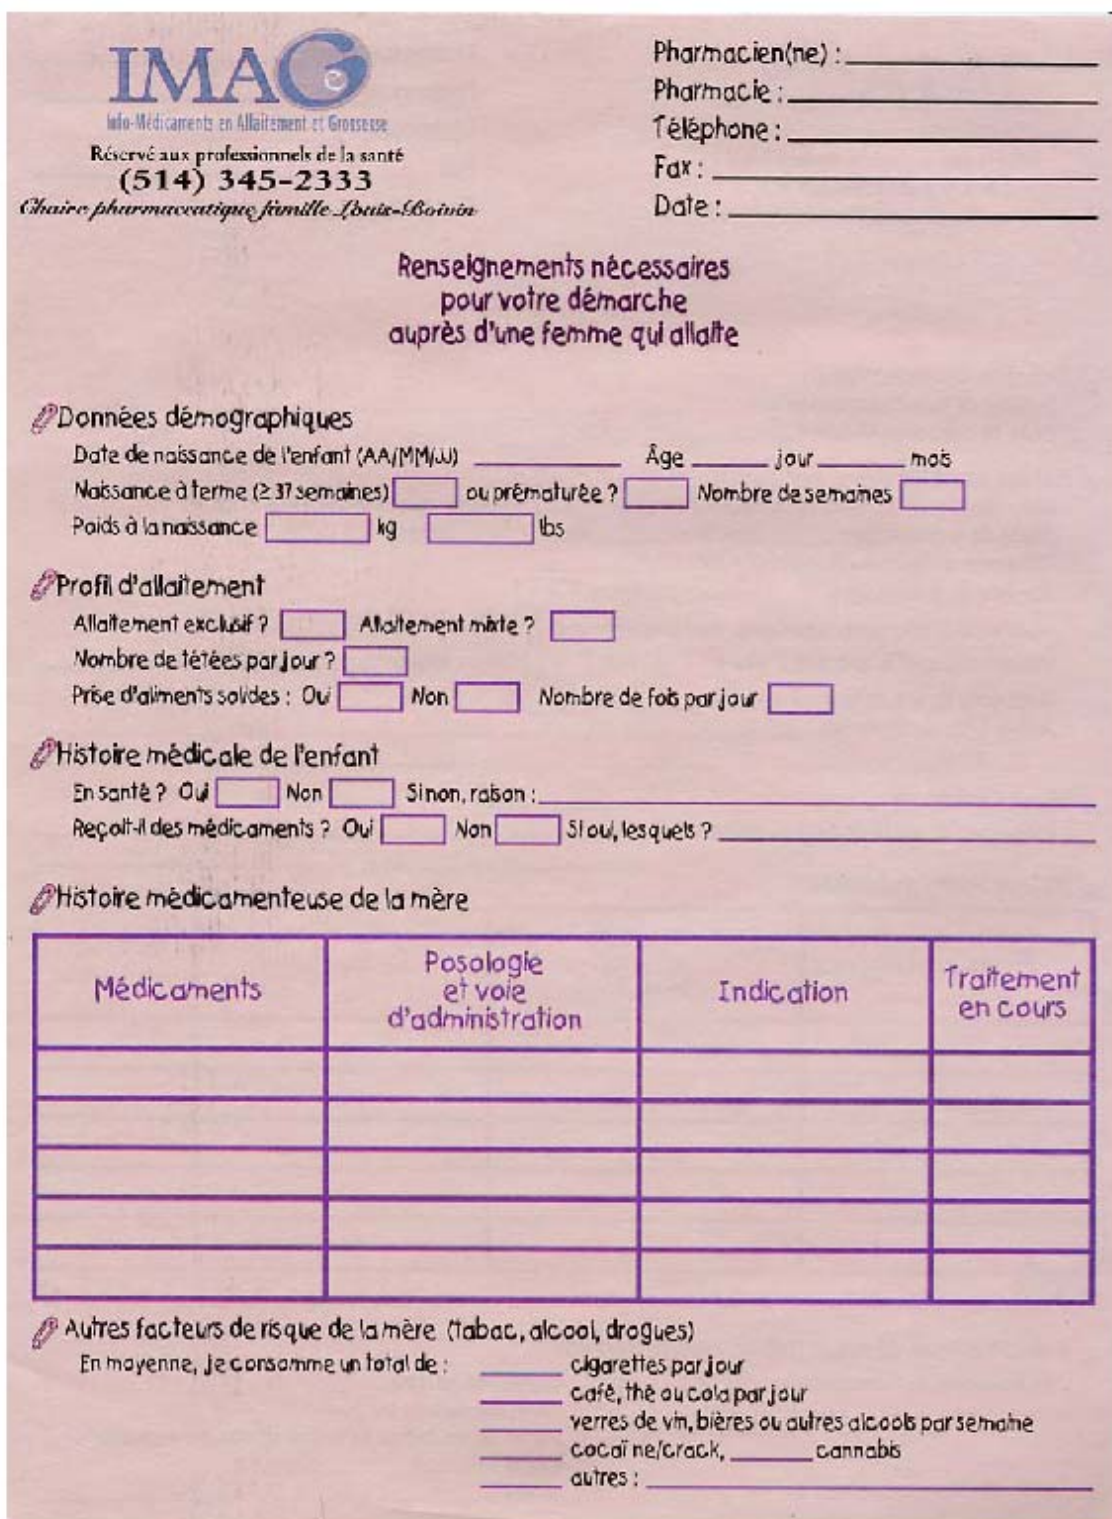 IMAGe
Info-Médicaments en Allaitement et Grossesse
Réservé aux professionnels de la santé
(514) 345-2333
Chaire pharmaceutique famille Louis-Boivin
Pharmacien(ne) :
Pharmacie :
Téléphone :
Fax :
Date :
Renseignements nécessaires
pour votre démarche
auprès d'une femme qui allaite
Données démographiques
Date de naissance de l'enfant (AA/MM/JJ) Âge jour mois
Naissance à terme (≥ 37 semaines) ou prématurée ? Nombre de semaines
Poids à la naissance kg lbs
Profil d'allaitement
Allaitement exclusif ? Allaitement mixte ?
Nombre de tétées par jour ?
Prise d'aliments solides : Oui Non Nombre de fois par jour
Histoire médicale de l'enfant
En santé ? Oui Non Si non, raison :
Reçoit-il des médicaments ? Oui Non Si oui, lesquels ?
Histoire médicamenteuse de la mère
Médicaments
Posologie
et voie
d'administration
Indication
Traitement
en cours
Autres facteurs de risque de la mère (tabac, alcool, drogues)
En moyenne, je consomme un total de : cigarettes par jour
café, thé ou cola par jour
verres de vin, bières ou autres alcools par semaine
cocaïne/crack, cannabis
autres :